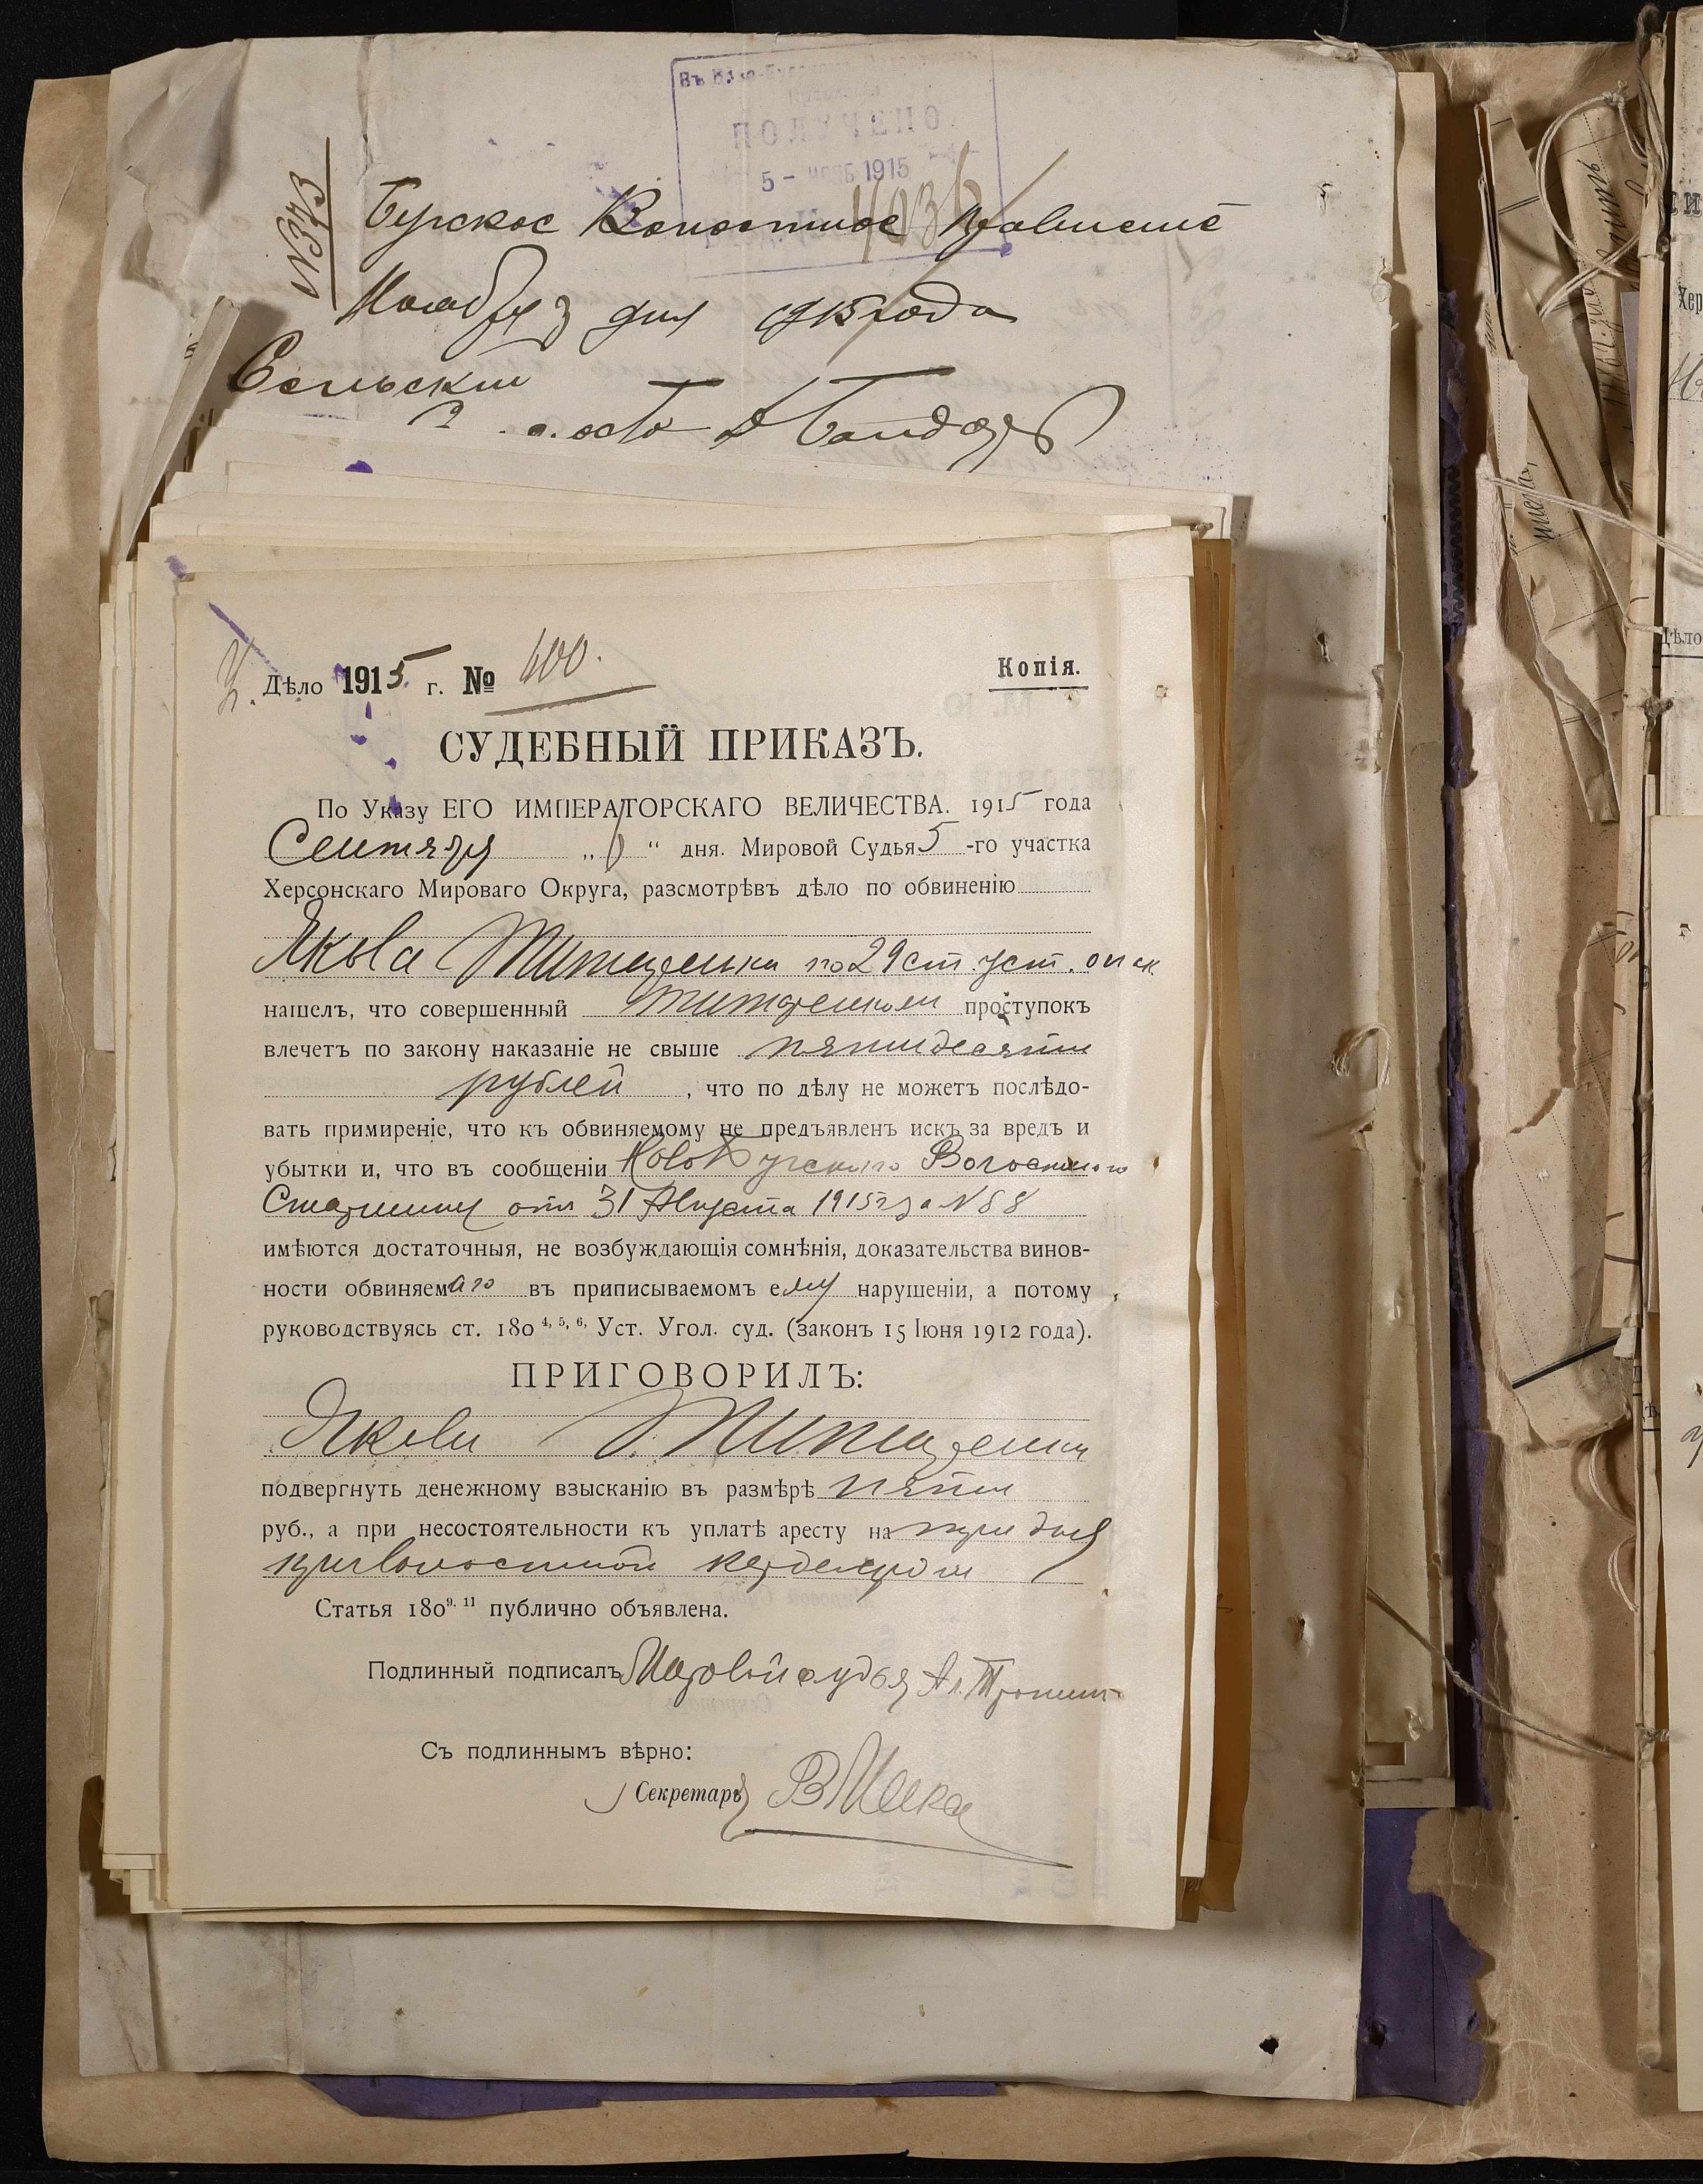 ПОЛУЧЕНО
5 - НОЯБ 1915
№373
Бугское Волостное Правление
Ноября 3 дня 1915 года
Сельский
Дѣло 1915 г. № 400.
Копія.
СУДЕБНЫЙ ПРИКАЗЪ.
По Указу ЕГО ИМПЕРАТОРСКАГО ВЕЛИЧЕСТВА. 1915 года
Сентября „ “ дня. Мировой Судья 5-го участка
Херсонскаго Мироваго Округа, разсмотрѣвъ дѣло по обвиненію
Якова Титаренки по 29 ст. уст. о нак
нашелъ, что совершенный Титаренком проступокъ
влечетъ по закону наказаніе не свыше пятидесяти
рублей, что по дѣлу не можетъ послѣдо-
вать примиреніе, что къ обвиняемому не предъявленъ искъ за вредъ и
убытки и, что въ сообщеніи НовоБугскаго Волостного
Старшины отъ 31 Августа 1915 г за № 88
имѣются достаточныя, не возбуждающія сомнѣнія, доказательства винов-
ности обвиняемаго въ приписываемомъ ему нарушеніи, а потому
руководствуясь ст. 180 4, 5, 6, Уст. Угол. суд. (законъ 15 Іюня 1912 года).
ПРИГОВОРИЛЪ:
Якова Титаренки
подвергнуть денежному взысканію въ размѣрѣ пяти
руб., а при несостоятельности къ уплатѣ аресту на три дня
при волостной
Статья 180 9. 11 публично объявлена.
Подлинный подписалъ Мировой судья Ал.
Съ подлиннымъ вѣрно:
Секретарь